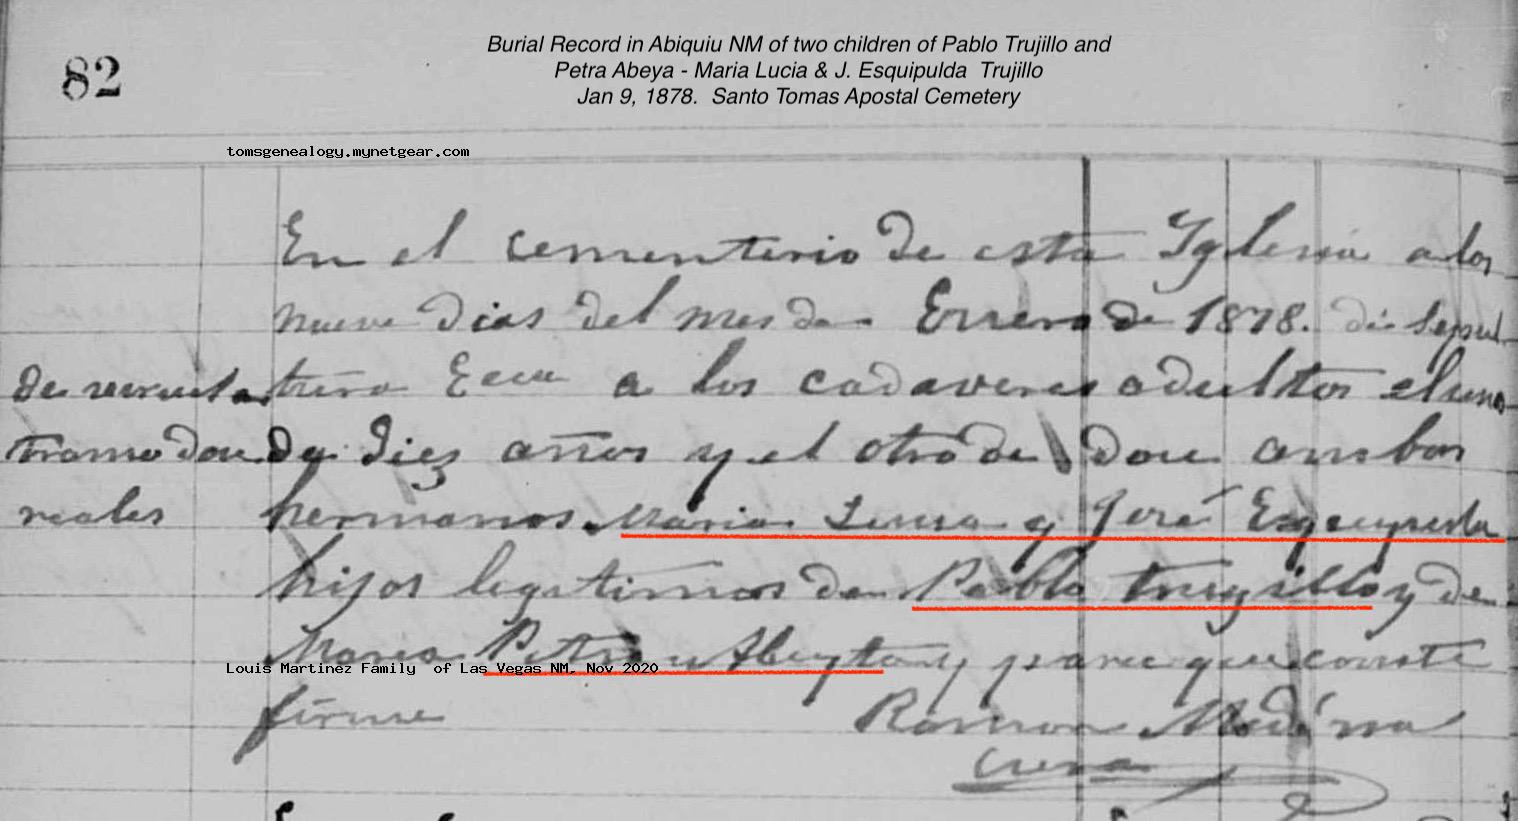 82
Burial Record in Abiquiu NM of two children of Pablo Trujillo and
Petra Abeya - Maria Lucia & J. Esquipulda Trujillo
Jan 9, 1878. Santo Tomas Apostal Cemetery
tomsgenealogy.mynetgear.com
En el cementerio de esta Iglesia a los
nueve dias del mes de Enero de 1878. di sepul
tura Ecca a los cadaveres adultos el uno
de diez años y el otro de doce ambos
hermanos Maria y José
hijos legitimos de Pablo Trugillo y de
Maria Petra Abeyta y para que conste
firme Ramon Medina
Cura
de
reales
Louis Martinez Family of Las Vegas NM, Nov 2020